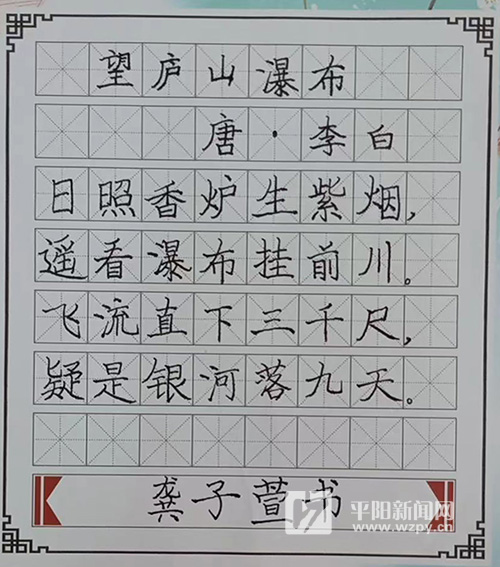 望庐山瀑布
唐·李白
日照香炉生紫烟,
遥看瀑布挂前川。
飞流直下三千尺,
疑是银河落九天。
龚子萱书
平阳新闻网
www.wzpy.cn